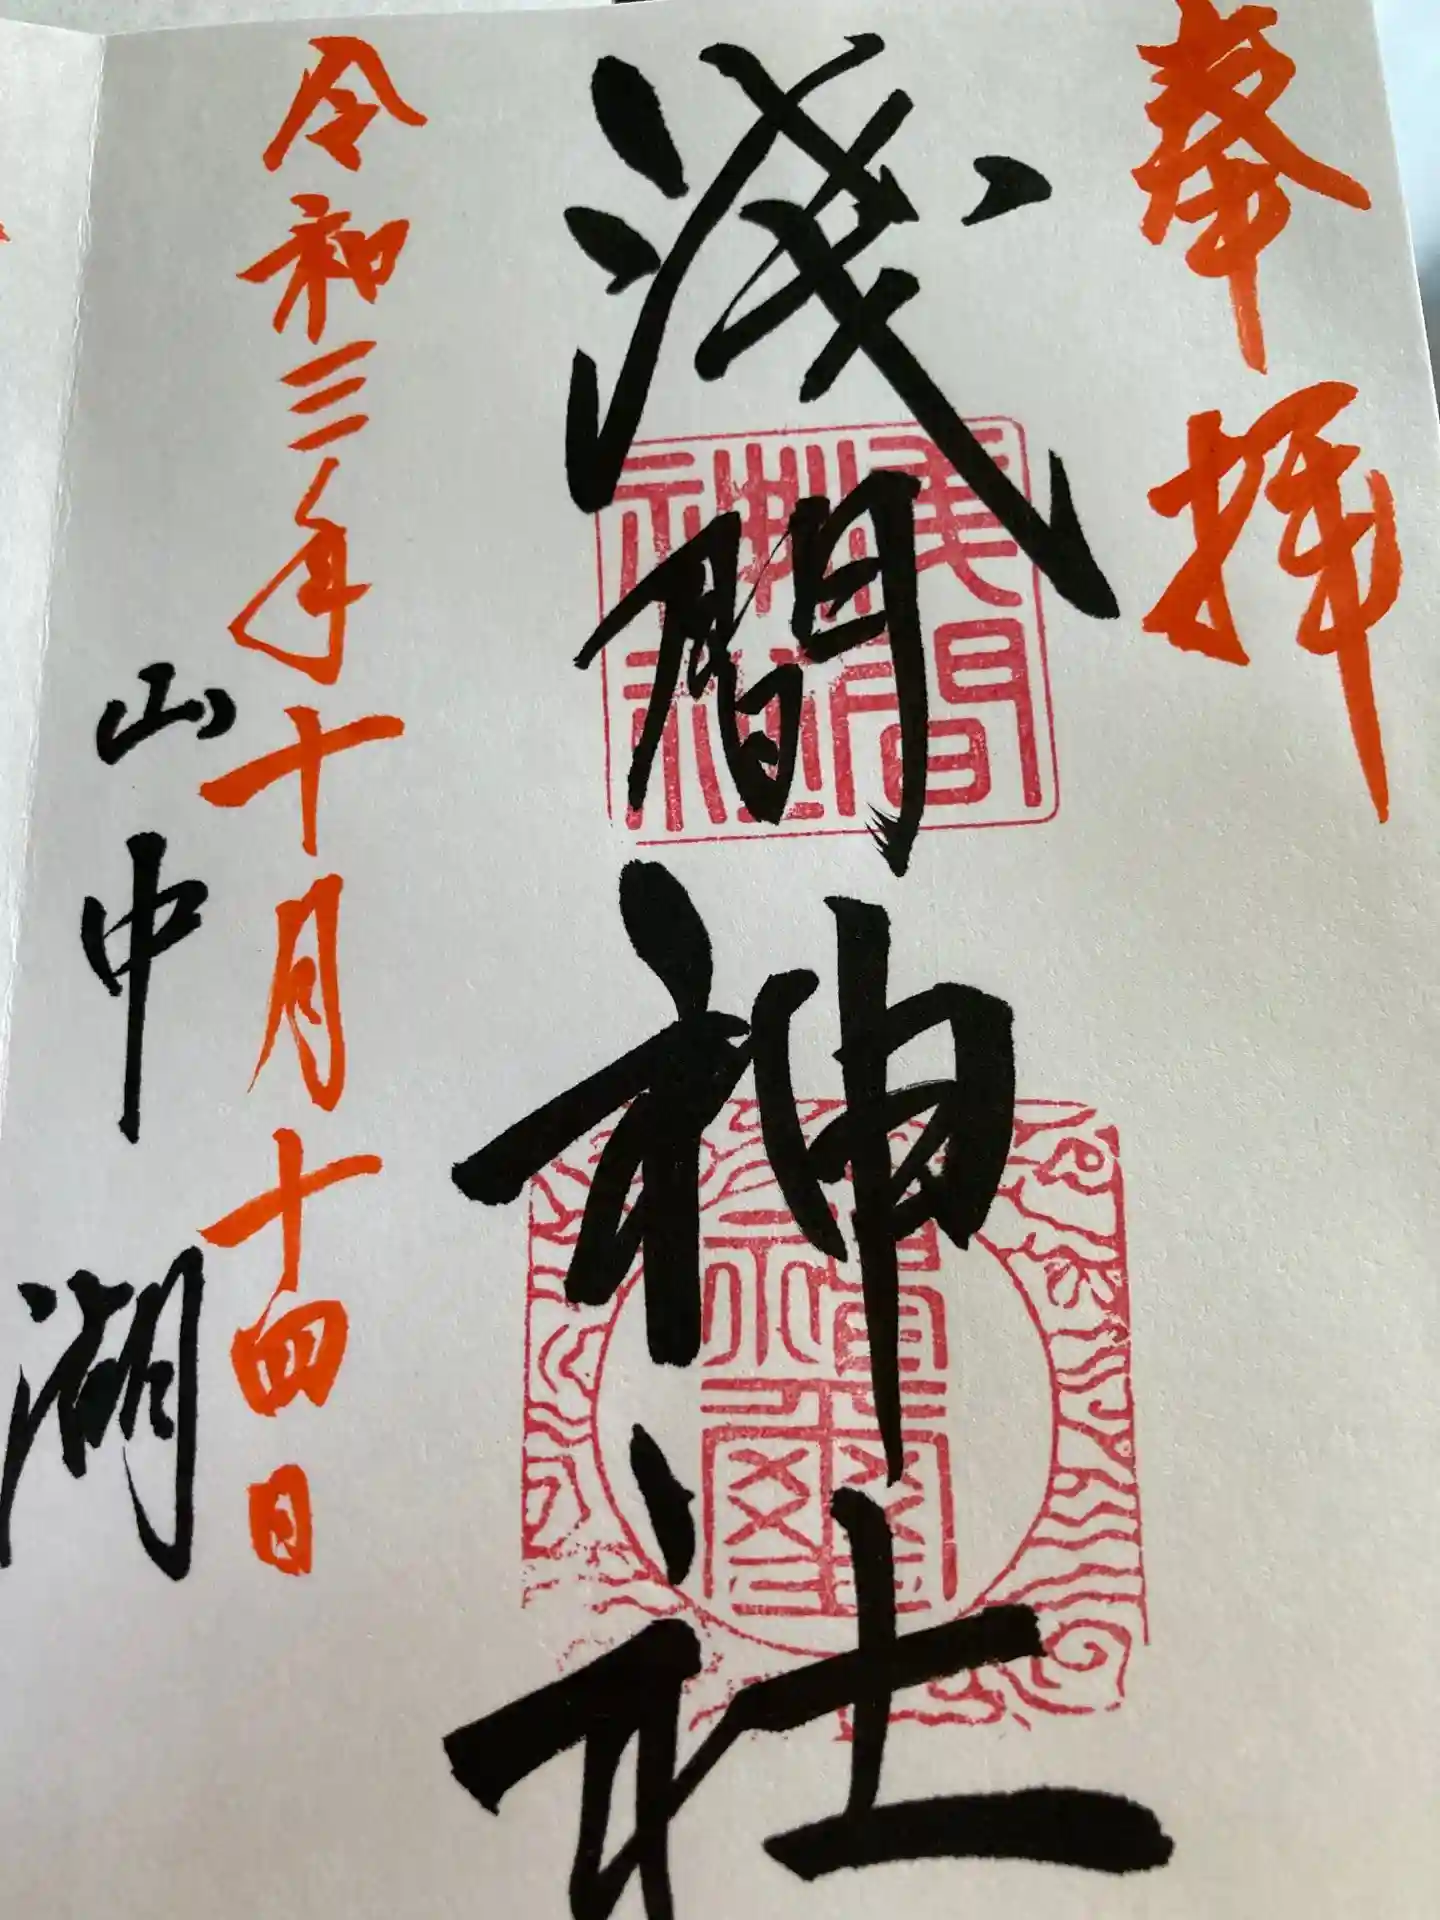 奉拝
浅間神社
令和三年十月十四日
山中湖
浅間神社